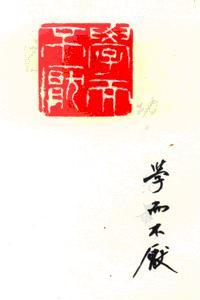 學而不厭
學而不厭